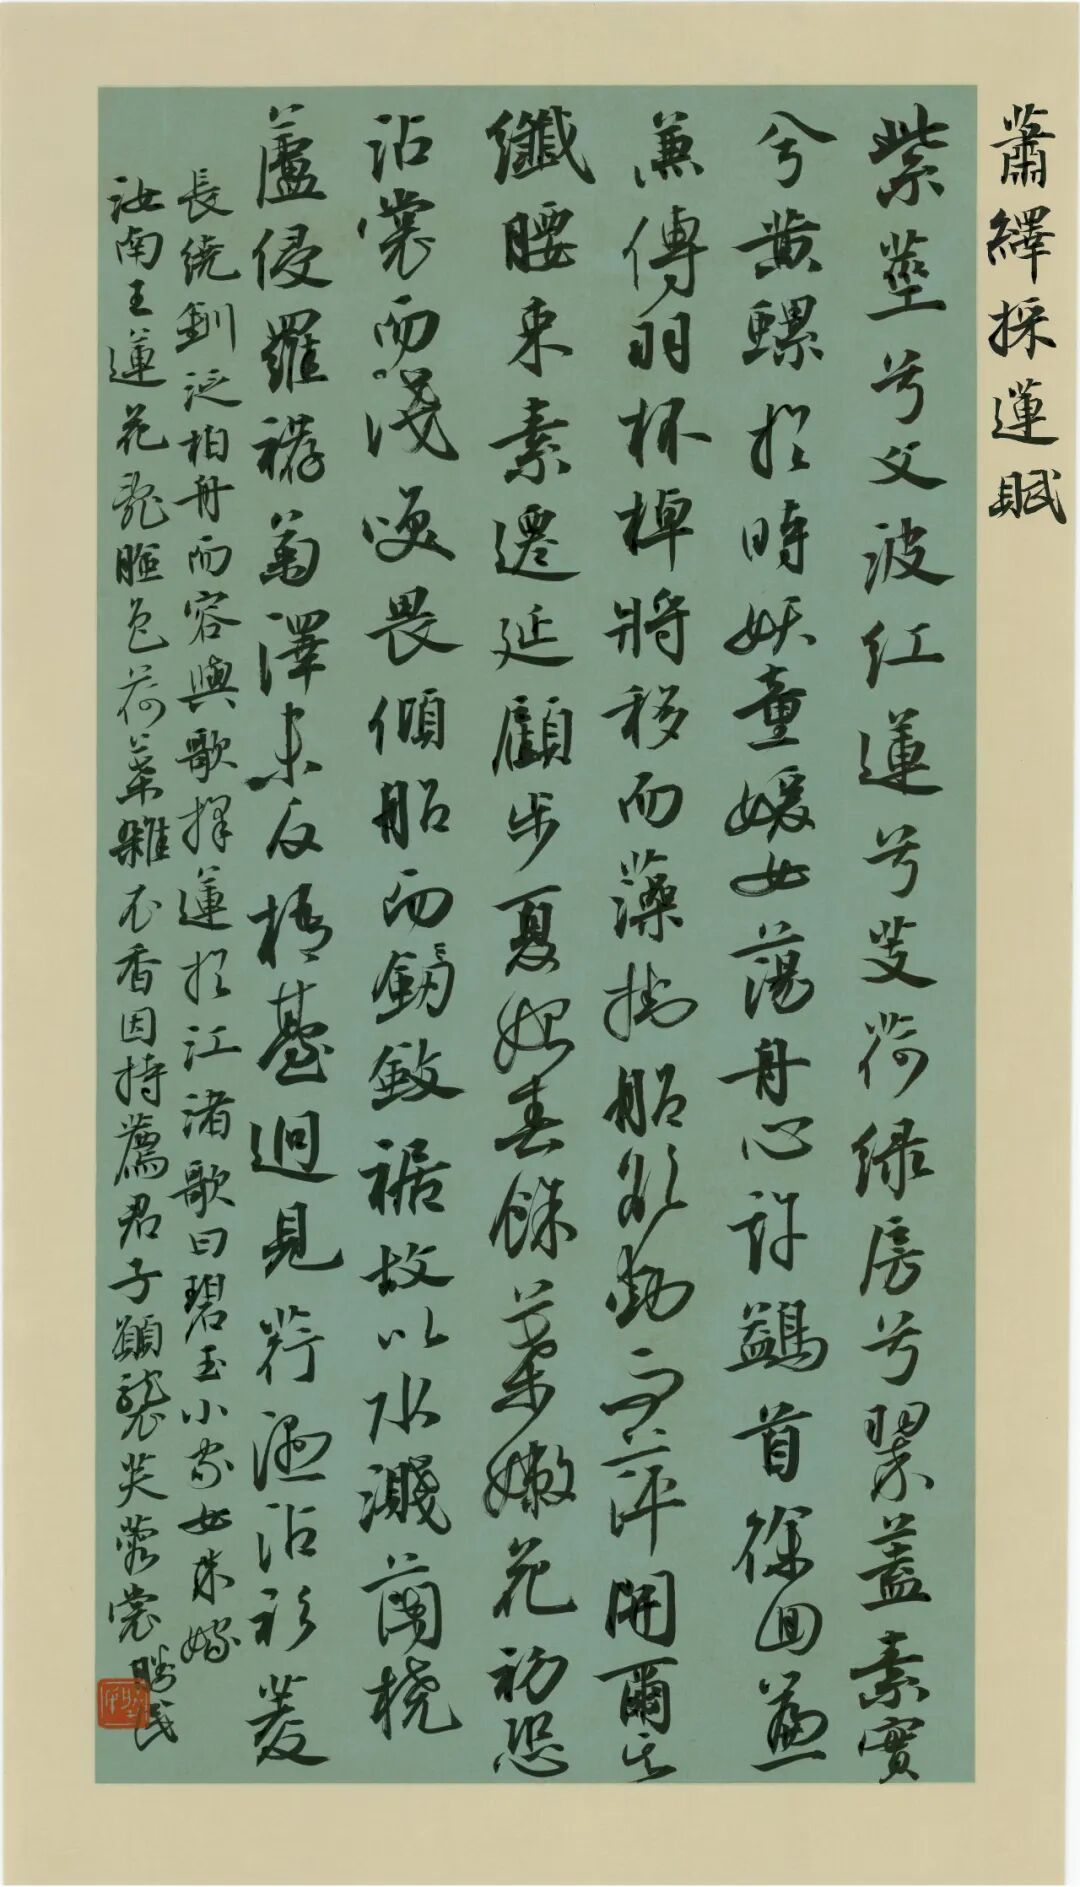 蕭繹採蓮賦
紫莖兮文波紅蓮兮芰荷綠房兮翠蓋素實
兮黃螺於時妖童媛女蕩舟心許鷁首徐回兼
傳羽杯棹將移而藻掛船欲動而萍開爾其
纖腰束素遷延顧步夏始春餘葉嫩花初恐
沾裳而淺笑畏傾船而斂裾故以水濺蘭橈
蘆侵羅襪菊澤未反梧臺迥見荇濕沾衫菱
長繞釧泛柏舟而容與歌採蓮於江渚歌曰碧玉小家女來嫁
汝南王蓮花亂臉色荷葉雜衣香因持薦君子願襲芙蓉裳